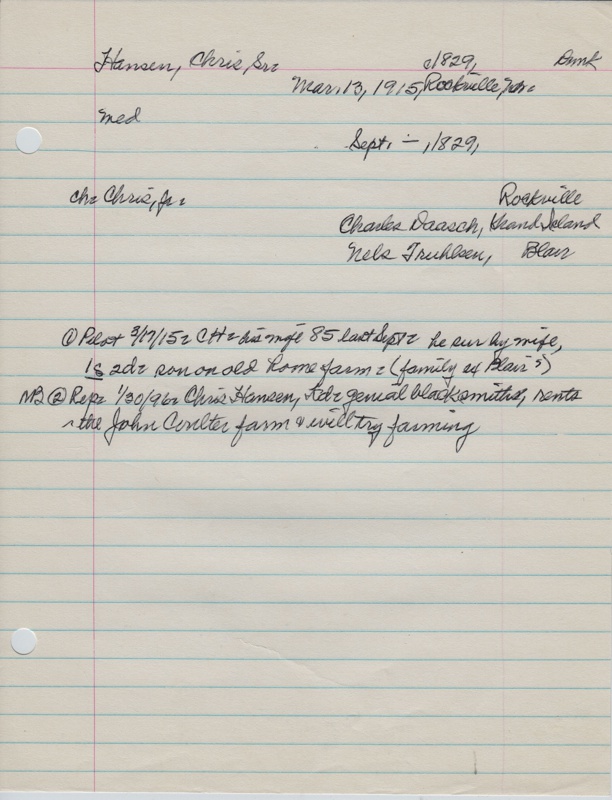 Hansen, Chris, Sr= c1829, Dmk
Mar. 13, 1915, Rockville, Nr=
med
Sept. -, 1829,
ch= Chris, Jr= Rockville
Charles Daasch, Grand Island
Nels Truhlsen, Blair
① Pilot 3/17/15= CH= his wife 85 last Sept= he sur by wife,
1s 2d= son on old home farm= (family of Blair's)
② Rep= 1/30/96= Chris Hansen, genial blacksmith, rents
the John Coulter farm & will try farming